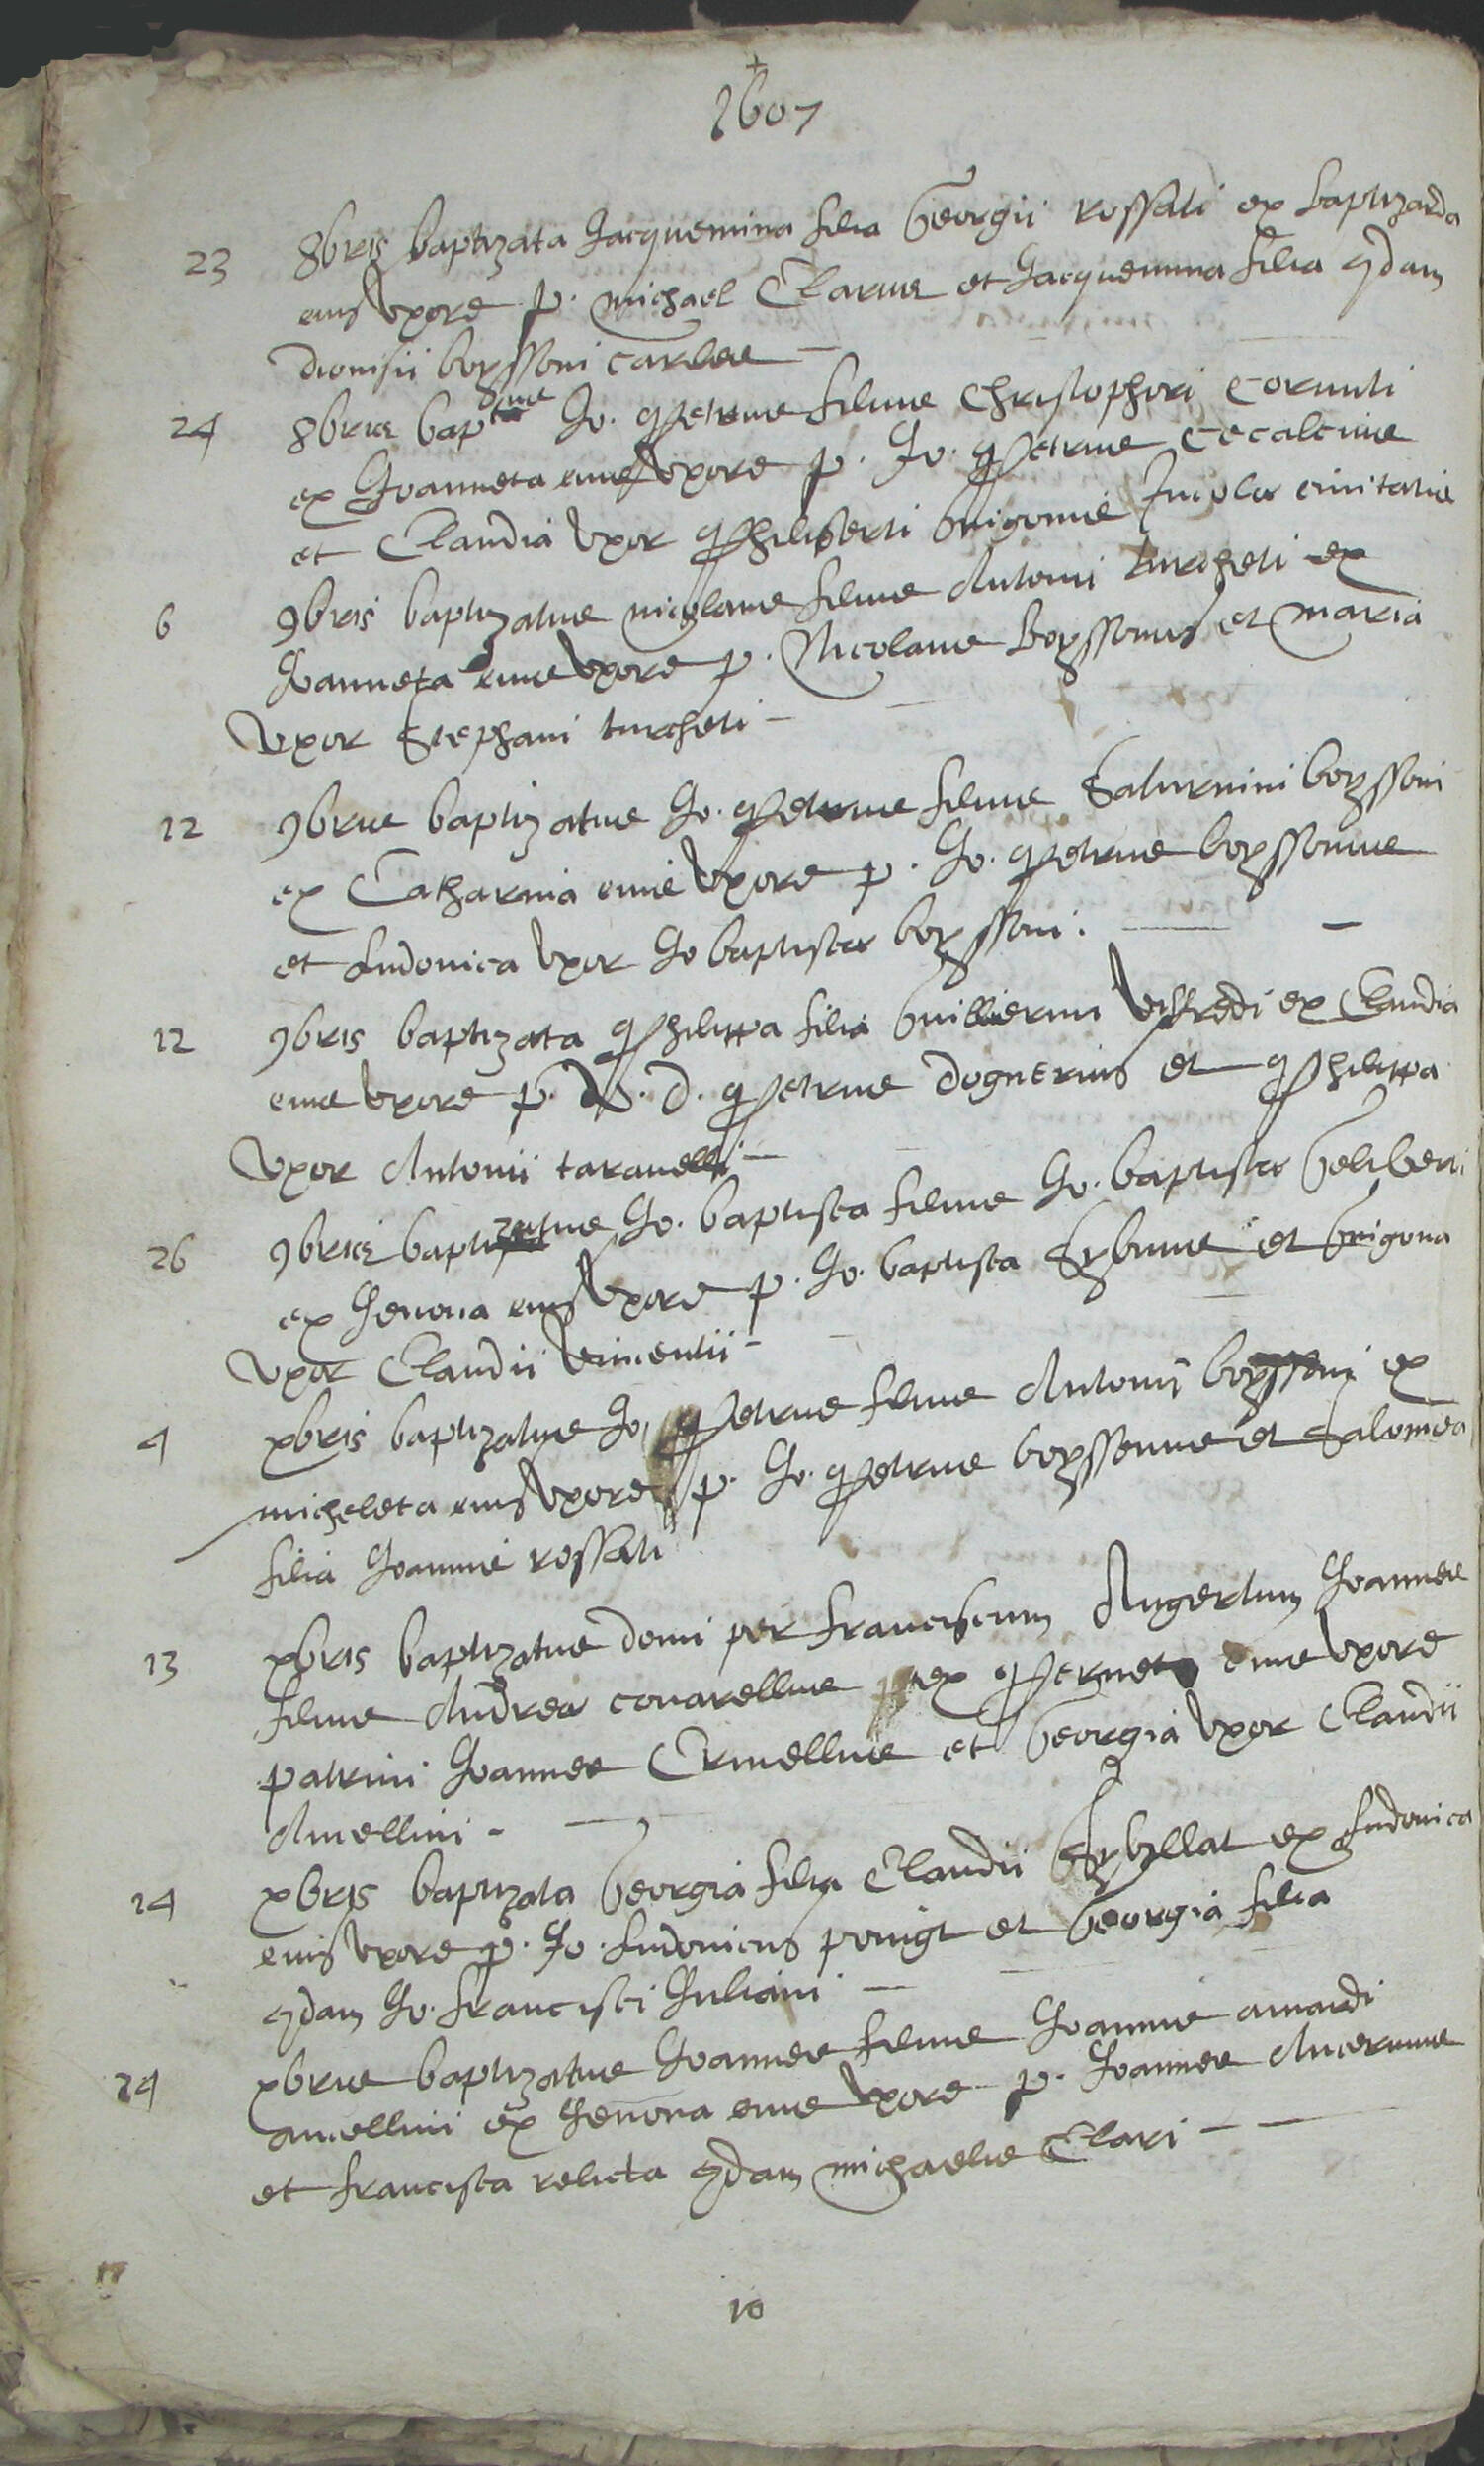 +
1607
23 8bris baptizata Jacquemina filia Georgii rossati ex baptizarda
eius uxore p. michael Clarus et Jacquemina filia qdam
dionisii boyssoni carlere
24 8bris baptus Jo. Petrus filius Christophori cornuti
ex Joanneta eius uxore p. Jo. Petrus cecalcius
et Claudia uxor Philiberti Guigonis Incola civitatis
6 9bris baptizatus nicolaus filius Antonii turcheti ex
Joanneta eius uxore p. Nicolaus Boyssonus et maria
uxor Stephani turcheti
12 9bris baptizatus Jo. Petrus filius Saturnini boyssoni
ex Catharina eius uxore p. Jo. Petrus boyssonus
et Ludovica uxor Jo baptistæ boyssoni.
12 9bris baptizata Philippa filia Guillermi Vesfredi ex Claudia
eius uxore p. R. d. Petrus dognerius et Philippa
uxor Antonii taravelli
26 9bris baptizatus Jo. baptista filius Jo. baptistæ Geliberti
ex Genona eius uxore p. Jo. baptista Sybuus et Guigona
uxor Claudii vincentii
4 xbris baptizatus Jo. Petrus filius Antonii boyssoni ex
micheleta eius uxore p. Jo. Petrus boyssonus et Salomea
filia Joannis rossati
13 xbris baptizatus domi per franciscum Augertum Joannes
filius Andreæ covarellus ex Perneta eius uxore
patrini Joannes Ermellus et Georgia uxor Claudii
Amellini
14 xbris baptizata Georgia filia Claudii Sybyllat ex Ludovica
eius uxore p. Jo. Ludovicus ponigt et Georgia filia
qdam Jo. francisci Juliani
24 xbris baptizatus Joannes filius Joannis amardi
amellini ex Genona eius uxore p. Joannes Ancerinus
et francisca relicta qdam michaelis Clari
10